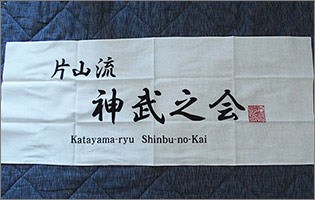 片山流
神武之会
Katayama-ryu Shinbu-no-Kai